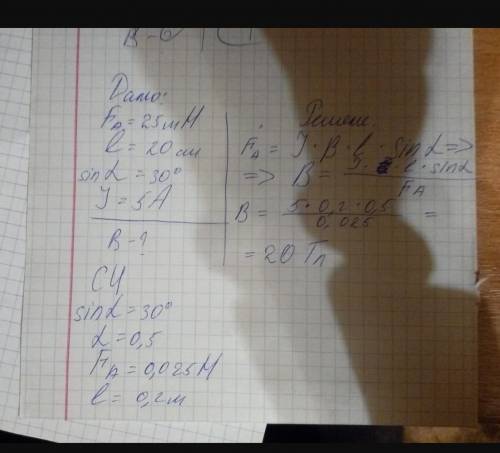 В-
Дано:
Fа = 25 mН
l = 20 см
sin α = 30°
J = 5А
В-?
СИ
sin α = 30°
α = 0,5
Fа = 0,025Н
l = 0,2м
Решение
Fа = J · B · l · sin α =>
=> B = J · l · sin α / Fа
B = 5 · 0,2 · 0,5 / 0,025 =
= 20 Тл